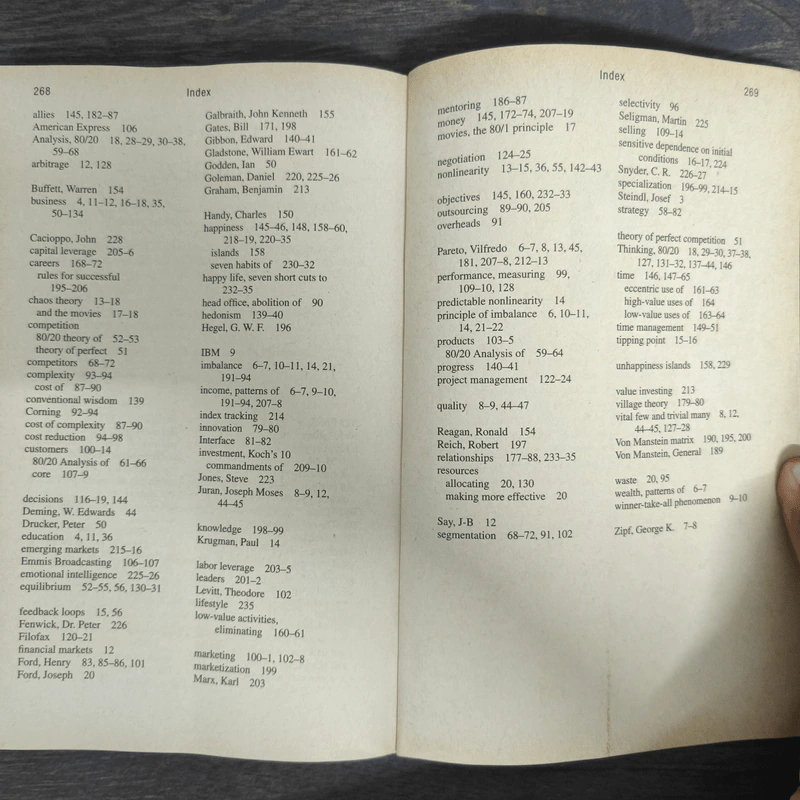 268
Index
allies 145, 182–87
American Express 106
Analysis, 80/20 18, 28–29, 30–38,
59–68
arbitrage 12, 128
Buffett, Warren 154
business 4, 11–12, 16–18, 35,
50–134
Cacioppo, John 228
capital leverage 205–6
careers 168–72
rules for successful
195–206
chaos theory 13–18
and the movies 17–18
competition
80/20 theory of 52–53
theory of perfect 51
competitors 68–72
complexity 93–94
cost of 87–90
conventional wisdom 139
Corning 92–94
cost of complexity 87–90
cost reduction 94–98
customers 100–14
80/20 Analysis of 61–66
core 107–9
decisions 116–19, 144
Deming, W. Edwards 44
Drucker, Peter 50
education 4, 11, 36
emerging markets 215–16
Emmis Broadcasting 106–107
emotional intelligence 225–26
equilibrium 52–55, 56, 130–31
feedback loops 15, 56
Fenwick, Dr. Peter 226
Filofax 120–21
financial markets 12
Ford, Henry 83, 85–86, 101
Ford, Joseph 20
Galbraith, John Kenneth 155
Gates, Bill 171, 198
Gibbon, Edward 140–41
Gladstone, William Ewart 161–62
Godden, Ian 50
Goleman, Daniel 220, 225–26
Graham, Benjamin 213
Handy, Charles 150
happiness 145–46, 148, 158–60,
218–19, 220–35
islands 158
seven habits of 230–32
happy life, seven short cuts to
232–35
head office, abolition of 90
hedonism 139–40
Hegel, G. W. F. 196
IBM 9
imbalance 6–7, 10–11, 14, 21,
191–94
income, patterns of 6–7, 9–10,
191–94, 207–8
index tracking 214
innovation 79–80
Interface 81–82
investment, Koch's 10
commandments of 209–10
Jones, Steve 223
Juran, Joseph Moses 8–9, 12,
44–45
knowledge 198–99
Krugman, Paul 14
labor leverage 203–5
leaders 201–2
Levitt, Theodore 102
lifestyle 235
low-value activities,
eliminating 160–61
marketing 100–1, 102–8
marketization 199
Marx, Karl 203
Index
269
mentoring 186–87
money 145, 172–74, 207–19
movies, the 80/1 principle 17
negotiation 124–25
nonlinearity 13–15, 36, 55, 142–43
objectives 145, 160, 232–33
outsourcing 89–90, 205
overheads 91
Pareto, Vilfredo 6–7, 8, 13, 45,
181, 207–8, 212–13
performance, measuring 99,
109–10, 128
predictable nonlinearity 14
principle of imbalance 6, 10–11,
14, 21–22
products 103–5
80/20 Analysis of 59–64
progress 140–41
project management 122–24
quality 8–9, 44–47
Reagan, Ronald 154
Reich, Robert 197
relationships 177–88, 233–35
resources
allocating 20, 130
making more effective 20
Say, J-B 12
segmentation 68–72, 91, 102
selectivity 96
Seligman, Martin 225
selling 109–14
sensitive dependence on initial
conditions 16–17, 224
Snyder, C. R. 226–27
specialization 196–99, 214–15
Steindl, Josef 3
strategy 58–82
theory of perfect competition 51
Thinking, 80/20 18, 29–30, 37–38,
127, 131–32, 137–44, 146
time 146, 147–65
eccentric use of 161–63
high-value uses of 164
low-value uses of 163–64
time management 149–51
tipping point 15–16
unhappiness islands 158, 229
value investing 213
village theory 179–80
vital few and trivial many 8, 12,
44–45, 127–28
Von Manstein matrix 190, 195, 200
Von Manstein, General 189
waste 20, 95
wealth, patterns of 6–7
winner-take-all phenomenon 9–10
Zipf, George K. 7–8